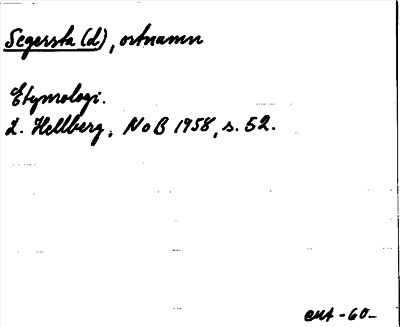 Segersta (d), ortnamn
Etymologi.
L. Hellberg, NoB 1958, s. 52.
-60-